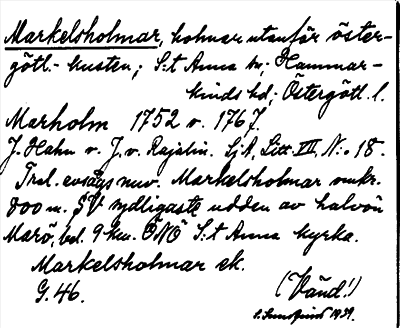 Markelsholmar, holmar utanför öster-
götl.-kusten; S:t Anna sn; Hammar-
kinds hd; Östergötl. l.
Marholm 1752 o. 1767.
J. Hahn o. J. v. Rajalin. SjK, Litt. VIII, N:o 18.
Trol. avsågs nuv. Markelsholmar omkr.
800 m. SV sydligaste udden av halvön
Marö, bel. 9 km. ÖNÖ S:t Anna kyrka.
Markelsholmar ek.
G. 46.
(Vänd!)
1939.